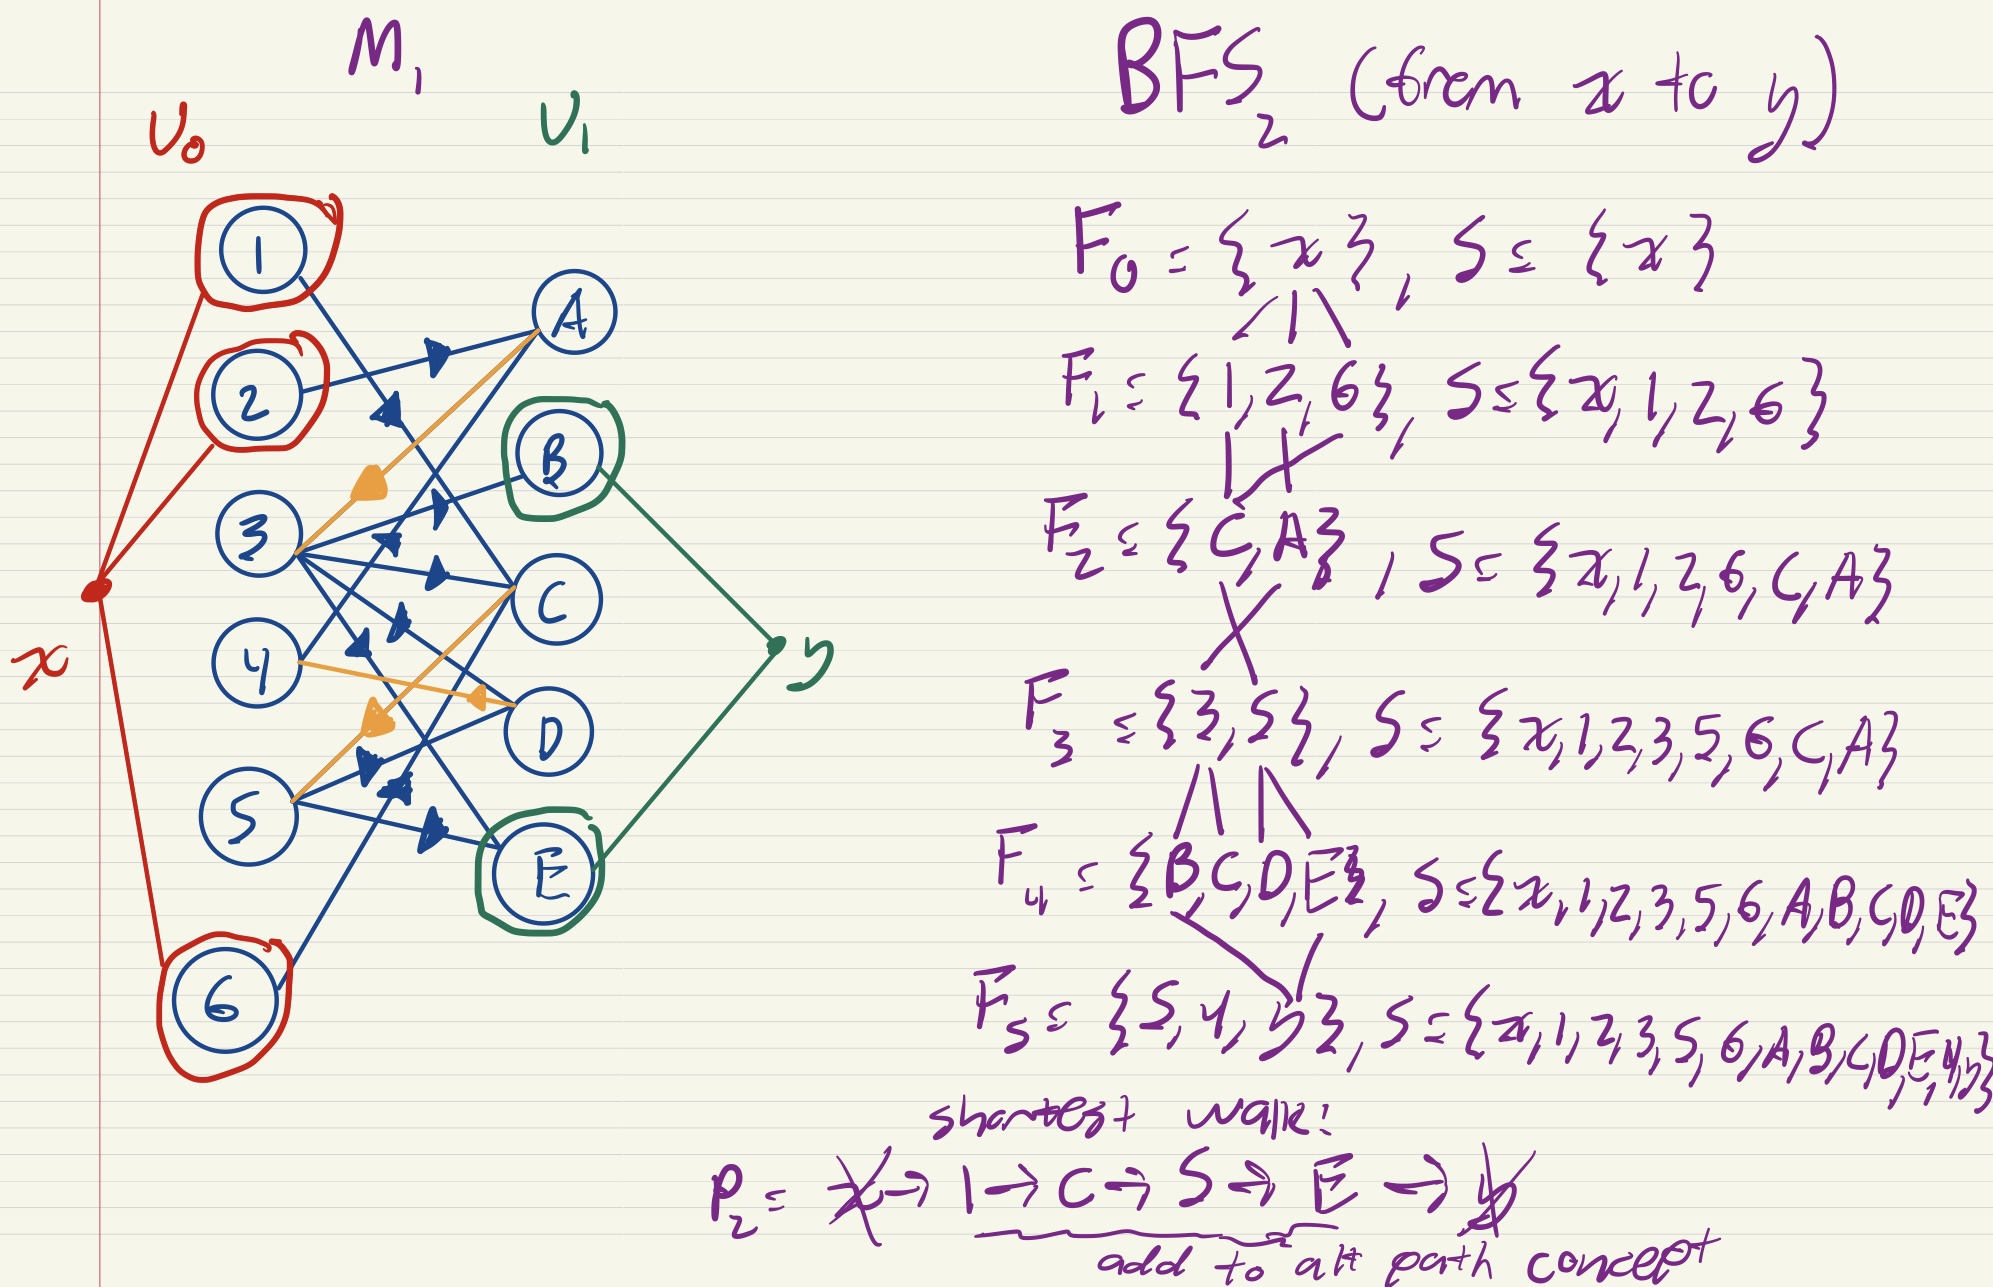 M₁
U₀
U₁
1
2
3
4
5
6
A
B
C
D
E
x
y
BFS₂ (from x to y)
F₀ = {x}, S = {x}
F₁ = {1, 2, 6}, S = {x, 1, 2, 6}
F₂ = {C, A}, S = {x, 1, 2, 6, C, A}
F₃ = {3, 5}, S = {x, 1, 2, 3, 5, 6, C, A}
F₄ = {B, C, D, E}, S = {x, 1, 2, 3, 5, 6, A, B, C, D, E}
F₅ = {5, 4, y}, S = {x, 1, 2, 3, 5, 6, A, B, C, D, E, 4, y}
shortest walk:
P₂ = x → 1 → C → 5 → E → y
add to alt path concept